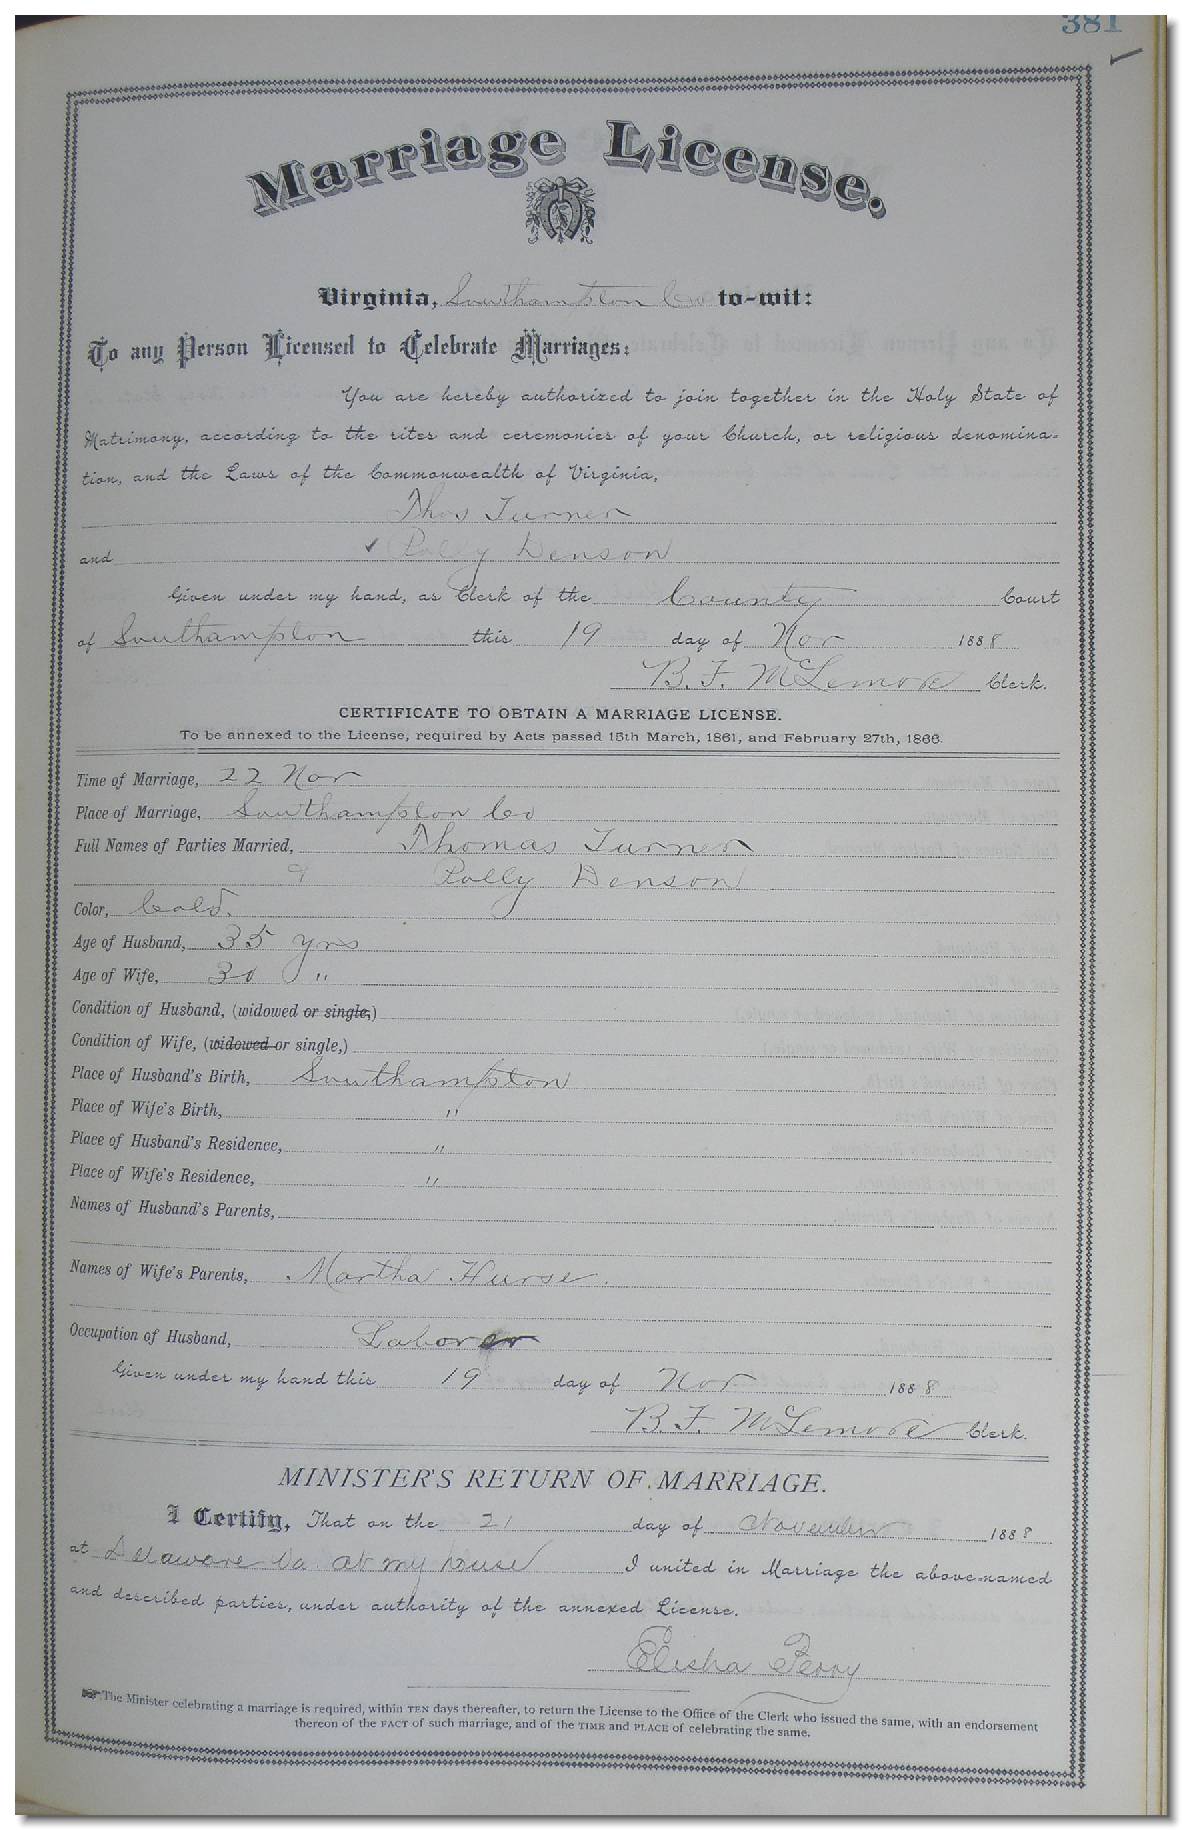 381
Marriage License.
Virginia, Southampton Co to-wit:
To any Person Licensed to Celebrate Marriages:
You are hereby authorized to join together in the Holy State of
Matrimony, according to the rites and ceremonies of your Church, or religious denomina-
tion, and the Laws of the Commonwealth of Virginia,
Thos Turner
and Polly Denson
Given under my hand, as Clerk of the County Court
of Southampton this 19 day of Nov 1888
B. F. McLemore Clerk.
CERTIFICATE TO OBTAIN A MARRIAGE LICENSE.
To be annexed to the License, required by Acts passed 15th March, 1861, and February 27th, 1866.
Time of Marriage, 22 Nov
Place of Marriage, Southampton Co
Full Names of Parties Married, Thomas Turner
& Polly Denson
Color, Cold.
Age of Husband, 35 yrs
Age of Wife, 30 "
Condition of Husband, (widowed or single,)
Condition of Wife, (widowed or single,)
Place of Husband's Birth, Southampton
Place of Wife's Birth, "
Place of Husband's Residence, "
Place of Wife's Residence, "
Names of Husband's Parents,
Names of Wife's Parents, Martha Hurse.
Occupation of Husband, Laborer
Given under my hand this 19 day of Nov 1888
B. F. McLemore Clerk.
MINISTER'S RETURN OF MARRIAGE.
I Certify, That on the 21 day of November 1888
at Delaware Va at my house I united in Marriage the above-named
and described parties, under authority of the annexed License.
Elisha Perry
The Minister celebrating a marriage is required, within TEN days thereafter, to return the License to the Office of the Clerk who issued the same, with an endorsement
thereon of the FACT of such marriage, and of the TIME and PLACE of celebrating the same.